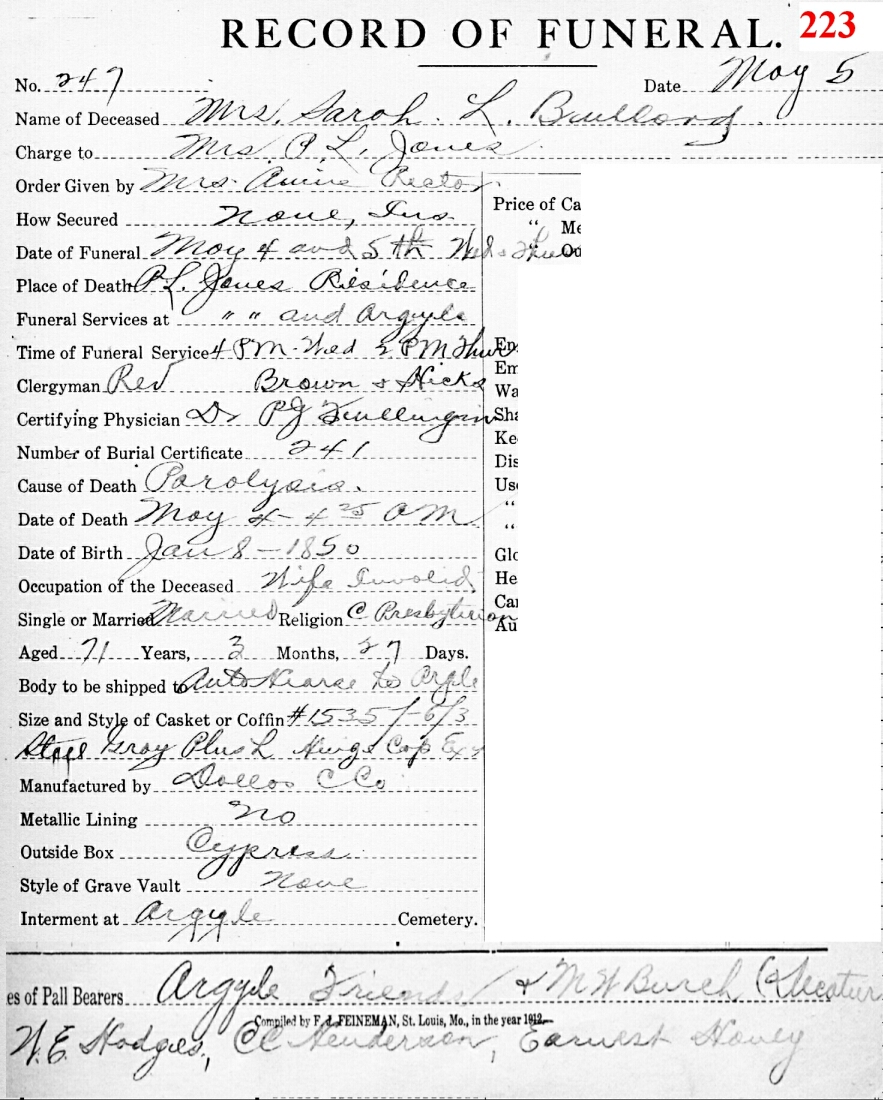 RECORD OF FUNERAL. 223
No. 247 Date May 5
Name of Deceased Mrs. Sarah. L. Bullard.
Charge to Mrs. P. L. Jones
Order Given by Mrs. Annie Rector
How Secured None, Ins
Price of Ca
Date of Funeral May 4 and 5th Wed & Thur
“ Me
“ Ou
Place of Death P. L. Jones Residence
Funeral Services at " " and Argyle
Time of Funeral Service 4 PM - Wed 2 PM Thur
En
Clergyman Rev Brown & Hicks
Em
Wa
Certifying Physician Dr PJ Fullingim
Sha
Number of Burial Certificate 241
Ke
Cause of Death Paralysis.
Dis
Use
Date of Death May 4 - 4 25 AM
“
“
Date of Birth Jan 8 - 1850
Glo
Occupation of the Deceased Wife Invalid
He
Single or Married Married Religion C Presbyterian
Car
Au
Aged 71 Years, 3 Months, 27 Days.
Body to be shipped to Auto Hearse to Argle
Size and Style of Casket or Coffin #1535 / - 6/3
Gray Plush Hinge Cap
Manufactured by Dallas C Co
Metallic Lining No
Outside Box Cypress
Style of Grave Vault None
Interment at Argyle Cemetery.
es of Pall Bearers Argyle Friends & M W Burch (Decatur
Compiled by F. J. FEINEMAN, St. Louis, Mo., in the year 1912.
W. E. Hodges, CC Henderson, Earnest Haney